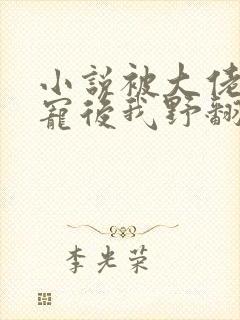 小說被大佬
寵後我野翻
李光荣